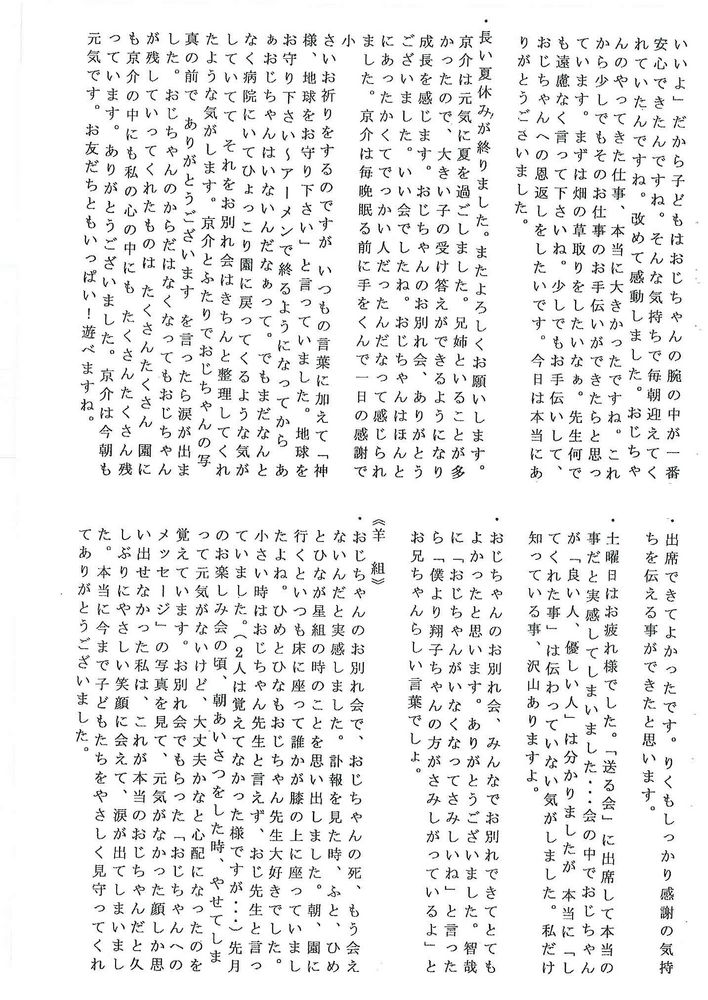 いいよ」だから子どもはおじちゃんの腕の中が一番
安心できたんですね。そんな気持ちで毎朝迎えてく
れていたんですね。改めて感動しました。おじちゃ
んのやってきた仕事、本当に大きかったですね。これ
から少しでもそのお仕事のお手伝いができたらと思っ
ています。まずは畑の草取りをしたいなぁ。先生何で
も遠慮なく言って下さいね。少しでもお手伝いして、
おじちゃんへの恩返しをしたいです。今日は本当にあ
りがとうございました。
・長い夏休みが終りました。またよろしくお願いします。
京介は元気に夏を過ごしました。兄姉といることが多
かったので、大きい子の受け答えができるようになり
成長を感じます。おじちゃんのお別れ会、ありがとう
ございました。いい会でしたね。おじちゃんはほんと
にあったかくてでっかい人だったんだなって感じられ
ました。京介は毎晩眠る前に手をくんで一日の感謝で
小
さいお祈りをするのですが いつもの言葉に加えて「神
様、地球をお守り下さい」と言っていました。地球を
お守り下さい～アーメンで終るようになってから あ
ぁおじちゃんはいないんだなぁって。でもまだなんと
なく病院にいてひょっこり園に戻ってくるような気が
していてて それをお別れ会はきちんと整理してくれ
たような気がします。京介とふたりでおじちゃんの写
真の前で ありがとうございます を言ったら涙が出ま
した。おじちゃんのからだはなくなってもおじちゃん
が残していってくれたものは たくさんたくさん 園に
も京介の中にも私の心の中にも たくさんたくさん残
っています。ありがとうございました。京介は今朝も
元気です。お友だちともいっぱい！遊べますね。
・出席できてよかったです。りくもしっかり感謝の気持
ちを伝える事ができたと思います。
・土曜日はお疲れ様でした。「送る会」に出席して本当の
事だと実感してしまいました・・・会の中でおじちゃん
が「良い人、優しい人」は分かりましたが 本当に「し
てくれた事」は伝わっていない気がしました。私だけ
知っている事、沢山ありますよ。
・おじちゃんのお別れ会、みんなでお別れできてとても
よかったと思います。ありがとうございました。智哉
に「おじちゃんがいなくなってさみしいね」と言った
ら「僕より翔子ちゃんの方がさみしがっているよ」と
お兄ちゃんらしい言葉でしょ。
《羊 組》
・おじちゃんのお別れ会で、おじちゃんの死、もう会え
ないんだと実感しました。訃報を見た時、ふと、ひめ
とひなが星組の時のことを思い出しました。朝、園に
行くといつも床に座って誰かが膝の上に座っていまし
たよね。ひめとひなもおじちゃん先生大好きでした。
小さい時はおじちゃん先生と言えず、おじ先生と言っ
ていました。（２人は覚えてなかった様ですが・・・）先月
のお楽しみ会の頃、朝あいさつをした時、やせてしま
って元気がないけど、大丈夫かなと心配になったのを
覚えています。お別れ会でもらった「おじちゃんへの
メッセージ」の写真を見て、元気がなかった顔しか思
い出せなかった私は、これが本当のおじちゃんだと久
しぶりにやさしい笑顔に会えて、涙が出てしまいまし
た。本当に今まで子どもたちをやさしく見守ってくれ
てありがとうございました。